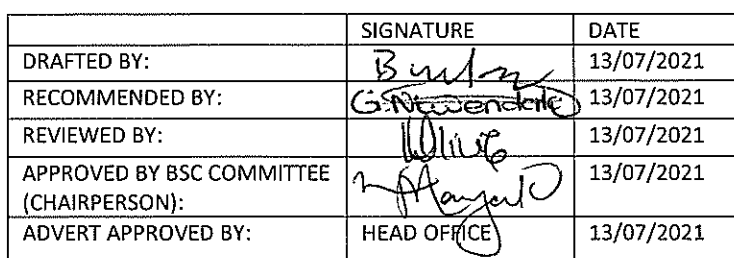 SIGNATURE DATE
DRAFTED BY: 13/07/2021
RECOMMENDED BY: 13/07/2021
REVIEWED BY: 13/07/2021
APPROVED BY BSC COMMITTEE 13/07/2021
(CHAIRPERSON):
ADVERT APPROVED BY: HEAD OFFICE 13/07/2021